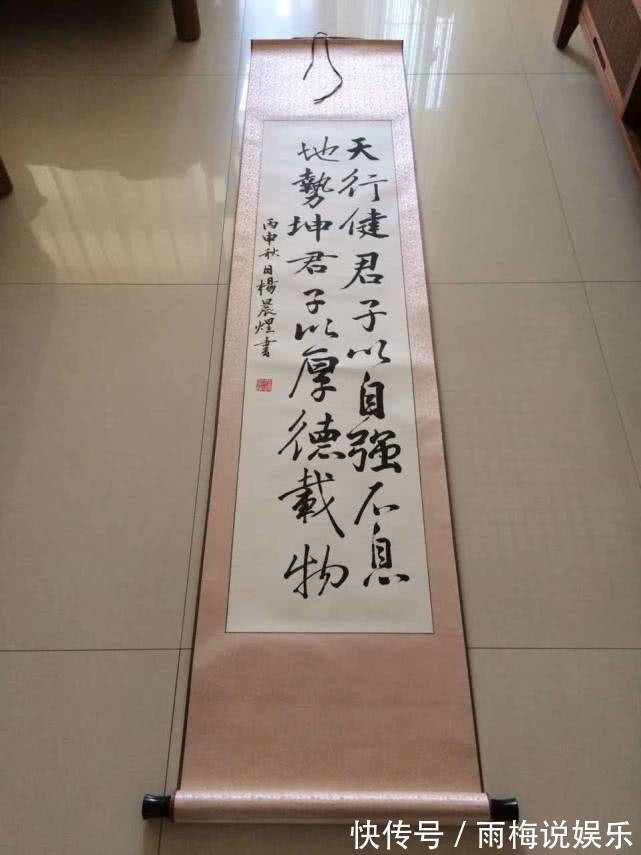 天行健君子以自强不息
地勢坤君子以厚德載物
丙申秋日楊晨煜書
快传号/雨梅说娱乐